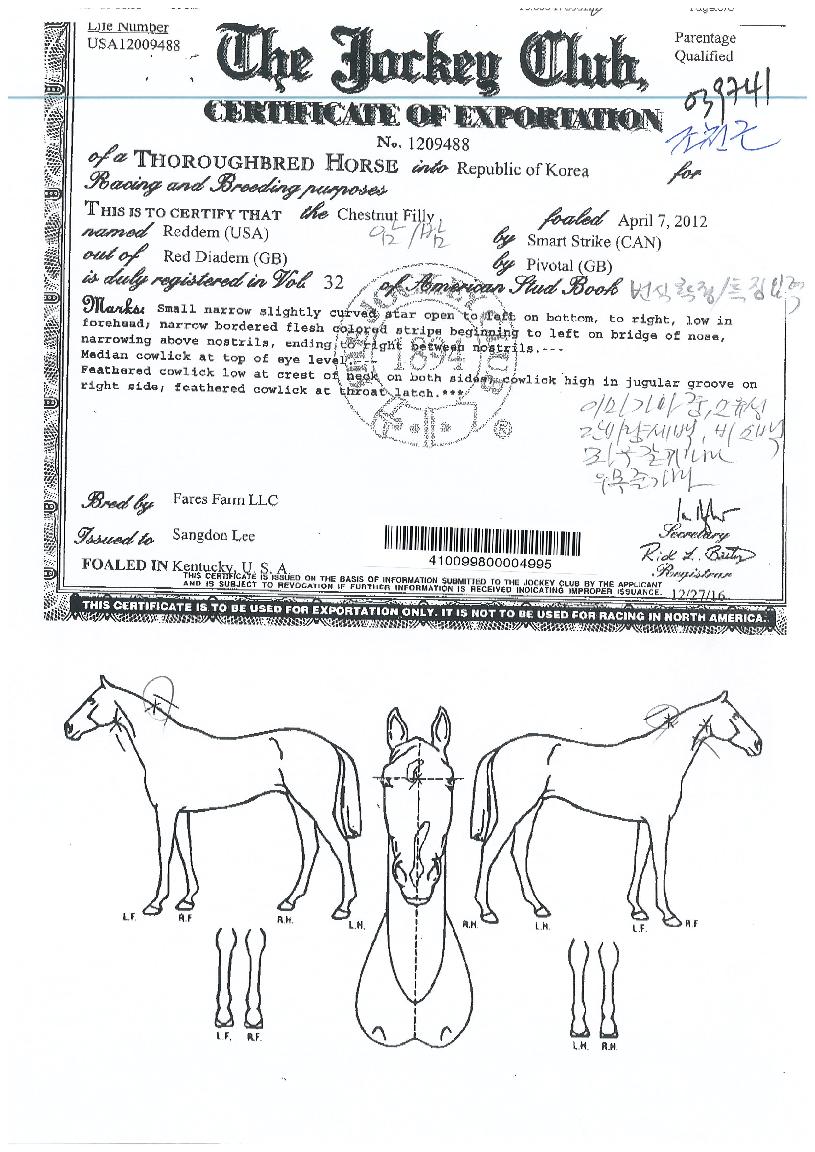 Life Number
USA12009488
The Jockey Club
Parentage
Qualified
039741
CERTIFICATE OF EXPORTATION
No. 1209488
of a THOROUGHBRED HORSE into Republic of Korea for
Racing and Breeding purposes
THIS IS TO CERTIFY THAT the Chestnut Filly foaled April 7, 2012
named Reddem (USA) by Smart Strike (CAN)
암/밤
out of Red Diadem (GB) by Pivotal (GB)
is duly registered in Vol. 32 of American Stud Book
Marks: Small narrow slightly curved star open to left on bottom, to right, low in
forehead; narrow bordered flesh colored stripe beginning to left on bridge of nose,
narrowing above nostrils, ending to right between nostrils.---
Median cowlick at top of eye level.
Feathered cowlick low at crest of neck on both sides; cowlick high in jugular groove on
right side; feathered cowlick at throat latch.***
1894
®
Bred by Fares Farm LLC
Issued to Sangdon Lee
Secretary
410099800004995
Registrar
FOALED IN Kentucky, U. S. A.
THIS CERTIFICATE IS ISSUED ON THE BASIS OF INFORMATION SUBMITTED TO THE JOCKEY CLUB BY THE APPLICANT
AND IS SUBJECT TO REVOCATION IF FURTHER INFORMATION IS RECEIVED INDICATING IMPROPER ISSUANCE. 12/27/16
THIS CERTIFICATE IS TO BE USED FOR EXPORTATION ONLY. IT IS NOT TO BE USED FOR RACING IN NORTH AMERICA.
L.F. R.F. R.H. L.H. R.H. L.H. L.F. R.F
L.F. R.F. L.H. R.H.